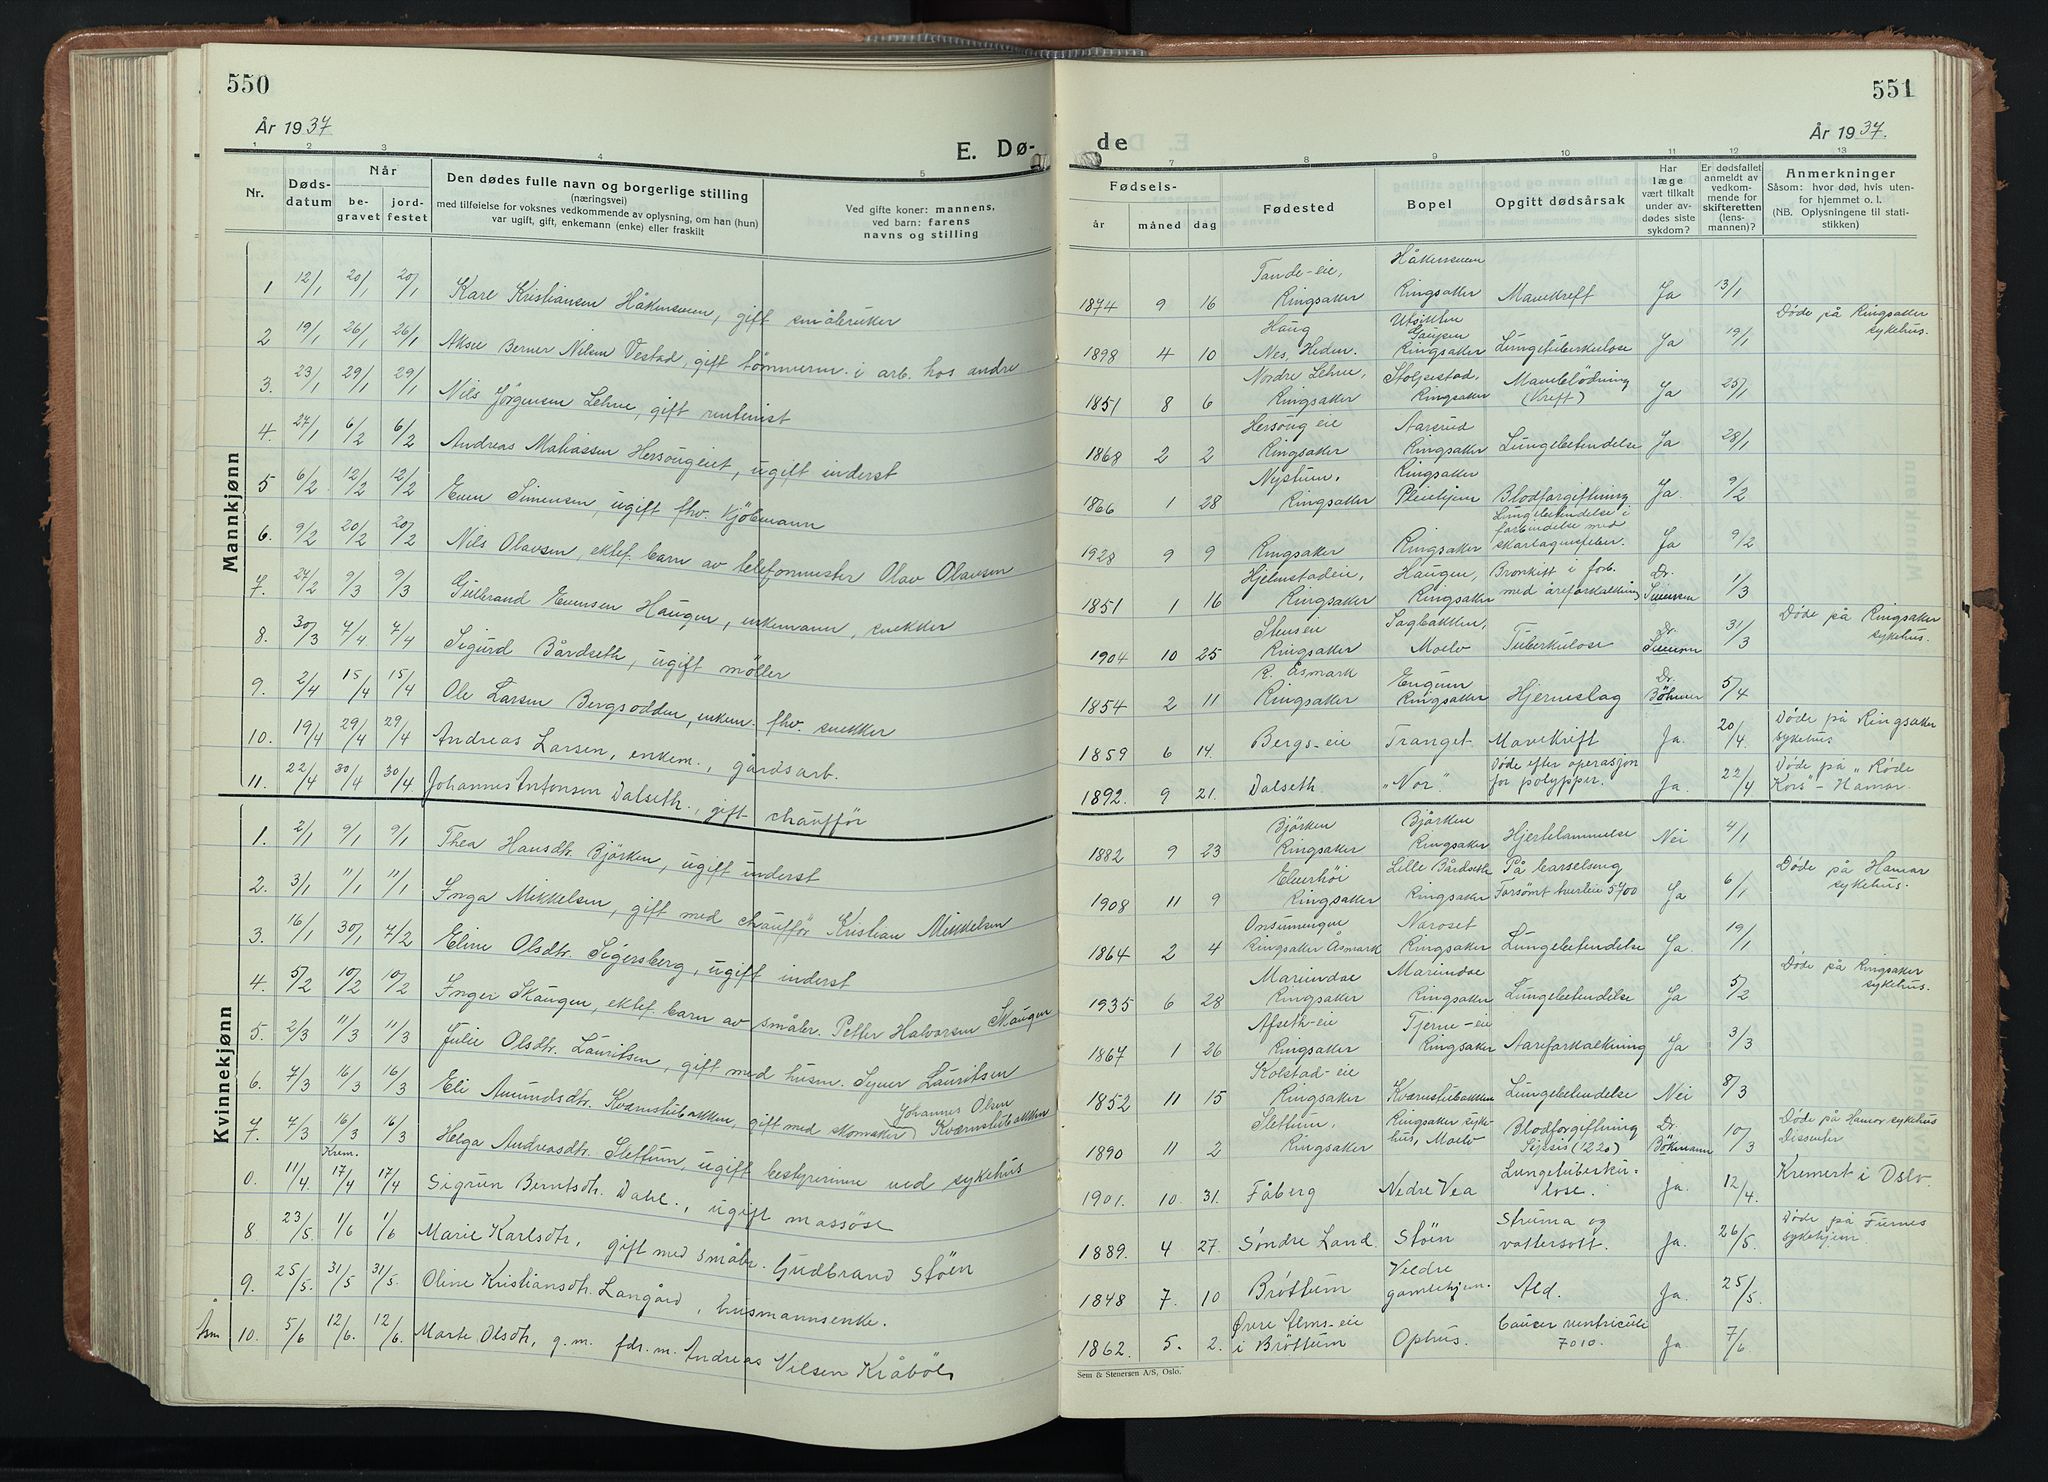 550
År 1937
E. Dø-
1 2 3 4 5
Nr. Døds-datum Når be-gravet jord-festet
Den dødes fulle navn og borgerlige stilling
(næringsvei)
med tilføielse for voksnes vedkommende av oplysning, om han (hun)
var ugift, gift, enkemann (enke) eller fraskilt
Ved gifte koner: mannens,
ved barn: farens
navns og stilling
Mannkjønn
1 12/1 20/1 20/1 Kristiansen Håkensveen, gift småbruker
2 19/1 26/1 26/1 Berner Nilsen Vestad, gift tømmerm. i arb. hos andre
3. 23/1 29/1 29/1 Nils Jörgensen Lehne, gift rentenist
4. 27/1 6/2 6/2 Andreas Matiassen Hersougeiet, ugift inderst
5 6/2 12/2 12/2 Even Simensen, ugift fhv. kjöbmann
6. 9/2 20/2 20/2 Nils Olavsen, ektef. barn av telefonmester Olav Olavsen
7. 27/2 9/3 9/3 Gulbrand Evensen Haugen, enkemann, snekker
8. 30/3 7/4 7/4 Sigurd Bårdseth, ugift möller
9. 2/4 15/4 15/4 Ole Larsen Bergsodden, enkem. fhv. snekker
10. 19/4 29/4 29/4 Andreas Larsen, enkem., gårdsarb.
11. 22/4 30/4 30/4 Johannes Antonsen Dalseth, gift chaufför
Kvinnekjønn
1. 2/1 9/1 9/1 Thea Hansdtr. Björken, ugift inderst
2. 3/1 11/1 11/1 Inga Mikkelsen, gift med chaufför Kristian Mikkelsen
3. 16/1 30/1 7/2 Eline Olsdtr. Sigersberg, ugift inderst
4. 5/2 10/2 10/2 Inger Skaugen, ektef. barn av småbr. Petter Halvorsen Skaugen
5. 2/3 11/3 11/3 Julie Olsdtr. Lauritsen, gift med husm. Syver Lauritsen
6. 7/3 16/3 16/3 Eli Amundsdtr. Kværnstubakken, gift med skomaker Johannes Olsen Kværnstubakken
7. 7/3 16/3 16/3 Helga Andreasdtr. Slettum, ugift bestyrerinne ved sykehus
0. 11/4. Krem. 17/4 17/4 Sigrun Berntsdtr. Dahl., ugift massöse
8 23/5 1/6 1/6 Marie Karlsdtr, gift med småbr. Gudbrand Stöen
9. 25/5. 31/5 31/5. Oline Kristiansdtr. Langård, husmannsenke.
Åsm 10. 5/6 12/6. 12/6. Marte Olsdtr, g. m. fdr. m. Andreas Nilsen Kråböl
551
de
År 1937.
7 8 9 10 11 12 13
Fødsels-
år måned dag
Fødested
Bopel
Opgitt dødsårsak
Har
læge
vært tilkalt
under av-
dødes siste
sykdom?
Er dødsfallet
anmeldt av
vedkom-
mende for
skifteretten
(lens-
mannen)?
Anmerkninger
Såsom: hvor død, hvis uten-
for hjemmet o. l.
(NB. Oplysningene til stati-
stikken)
1874 9 16 Tande-eie, Ringsaker Håkensveen Ringsaker Mavekreft Ja 13/1
1898 4 10 Haug Nes, Hedm. Utsikten Gaupen Ringsaker Lungetuberkulose Ja 19/1 Døde på Ringsaker sykehus.
1851 8 6 Nordre Lehne, Ringsaker Stolpestad, Ringsaker Maveblödning (Kreft) Ja 25/1
1868 2 2 Hersoug eie Ringsaker Aarsrud Ringsaker Lungebetendelse Ja 28/1
1866 1 28 Nystuen, Ringsaker Ringsaker Pleiehjem Blodforgiftning Ja. 9/2
1928 9 9 Ringsaker Ringsaker Lungebetendelse i forbindelse med skarlagensfeber. Ja 9/2
1851 1 16 Hjelmstadeie, Ringsaker Haugen, Ringsaker Bronkitt i forb. med åreforkalkning Dr. Simensen 1/3
1904 10 25 Stenseie Ringsaker Sagbakken, Moelv Tuberkulose Dr. 31/3 Døde på Ringsaker sykehus.
1854 2 11 R. Åsmark Ringsaker Engum Ringsaker Hjerneslag Dr. 5/4
1859 6 14. Bergs-eie Tranget Mavekreft Ja. 20/4. Døde på Ringsaker sykehus
1892. 9 21. Dalseth "Nor". Døde efter operasjon for polypper. Ja. 22/4 Døde på "Røde Kors" - Hamar.
1882 9 23 Björken Ringsaker Björken Ringsaker Hjertelammelse Nei 4/1
1908 11 9 Ringsaker Lille Bårdseth Ringsaker På barselseng Forsömt tverleie 5400 Ja 6/1 Døde på Hamar sykehus.
1864 2 4 Ringsaker Åsmark Naroset Ringsaker Lungebetendelse Ja. 19/1
1935 6 28 Mariendal Ringsaker Mariendal Ringsaker Lungebetendelse Ja 5/2 Døde på Ringsaker sykehus.
1867 1 26 Afseth-eie Ringsaker Tjerne-eie Ringsaker Aareforkalkning Ja 3/3
1852 11 15 Kolstad-eie Ringsaker Kværnstubakken Lungebetendelse Nei 8/3
1890 11 2 Slettum, Ringsaker Ringsaker sykehus, Moelv Blodforgiftning (1220) Dr. Bökmann 10/3 Døde på Hamar sykehus Dissenter
1901. 10. 31. Fåberg Nedre Vea Lungetuberkulose. Ja. 12/4. Kremert i Oslo.
1889. 4 27. Søndre Land. Støen Struma og vattersott. Ja. 26/5. Døde på Furnes sykehjem.
1848 7. 10 Brøttum Veldre gamlehjem. Ald. Ja. 25/5.
1862. 5. 2. Øvre Alms-eie i Brøttum Ophus. Cancer ventriculi 7010. Ja. 7/6
Sem & Stenersen A/S, Oslo.